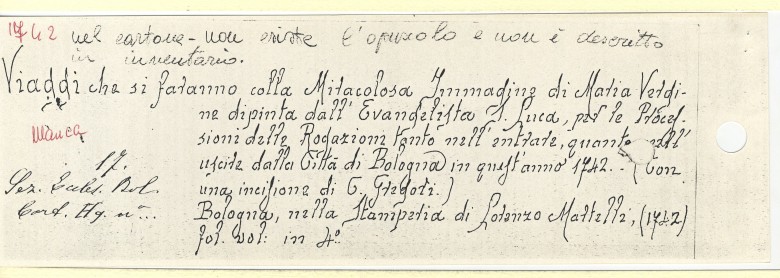 1742 nel cartone - non esiste l'opuscolo e non è descritto
in inventario.
Viaggi che si faranno colla Miracolosa Immagine di Maria Vergi=
ne dipinta dall'Evangelista S. Luca, per le Proces=
sioni delle Rogazioni tanto nell'entrare, quanto nell'
uscire dalla Città di Bologna in quest'anno 1742.. (con
una incisione di C. Gregori.)
Bologna, nella Stamperia di Lorenzo Martelli, (1742)
fol. vol: in 4º
Manca
17.
Sez. Eccles. Bol.
Cart. Hg. nº...